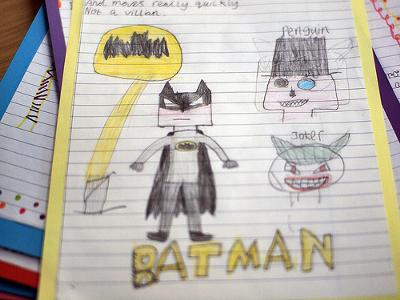 And moves really quickly
Not a villan.
Penguin
Joker
BATMAN